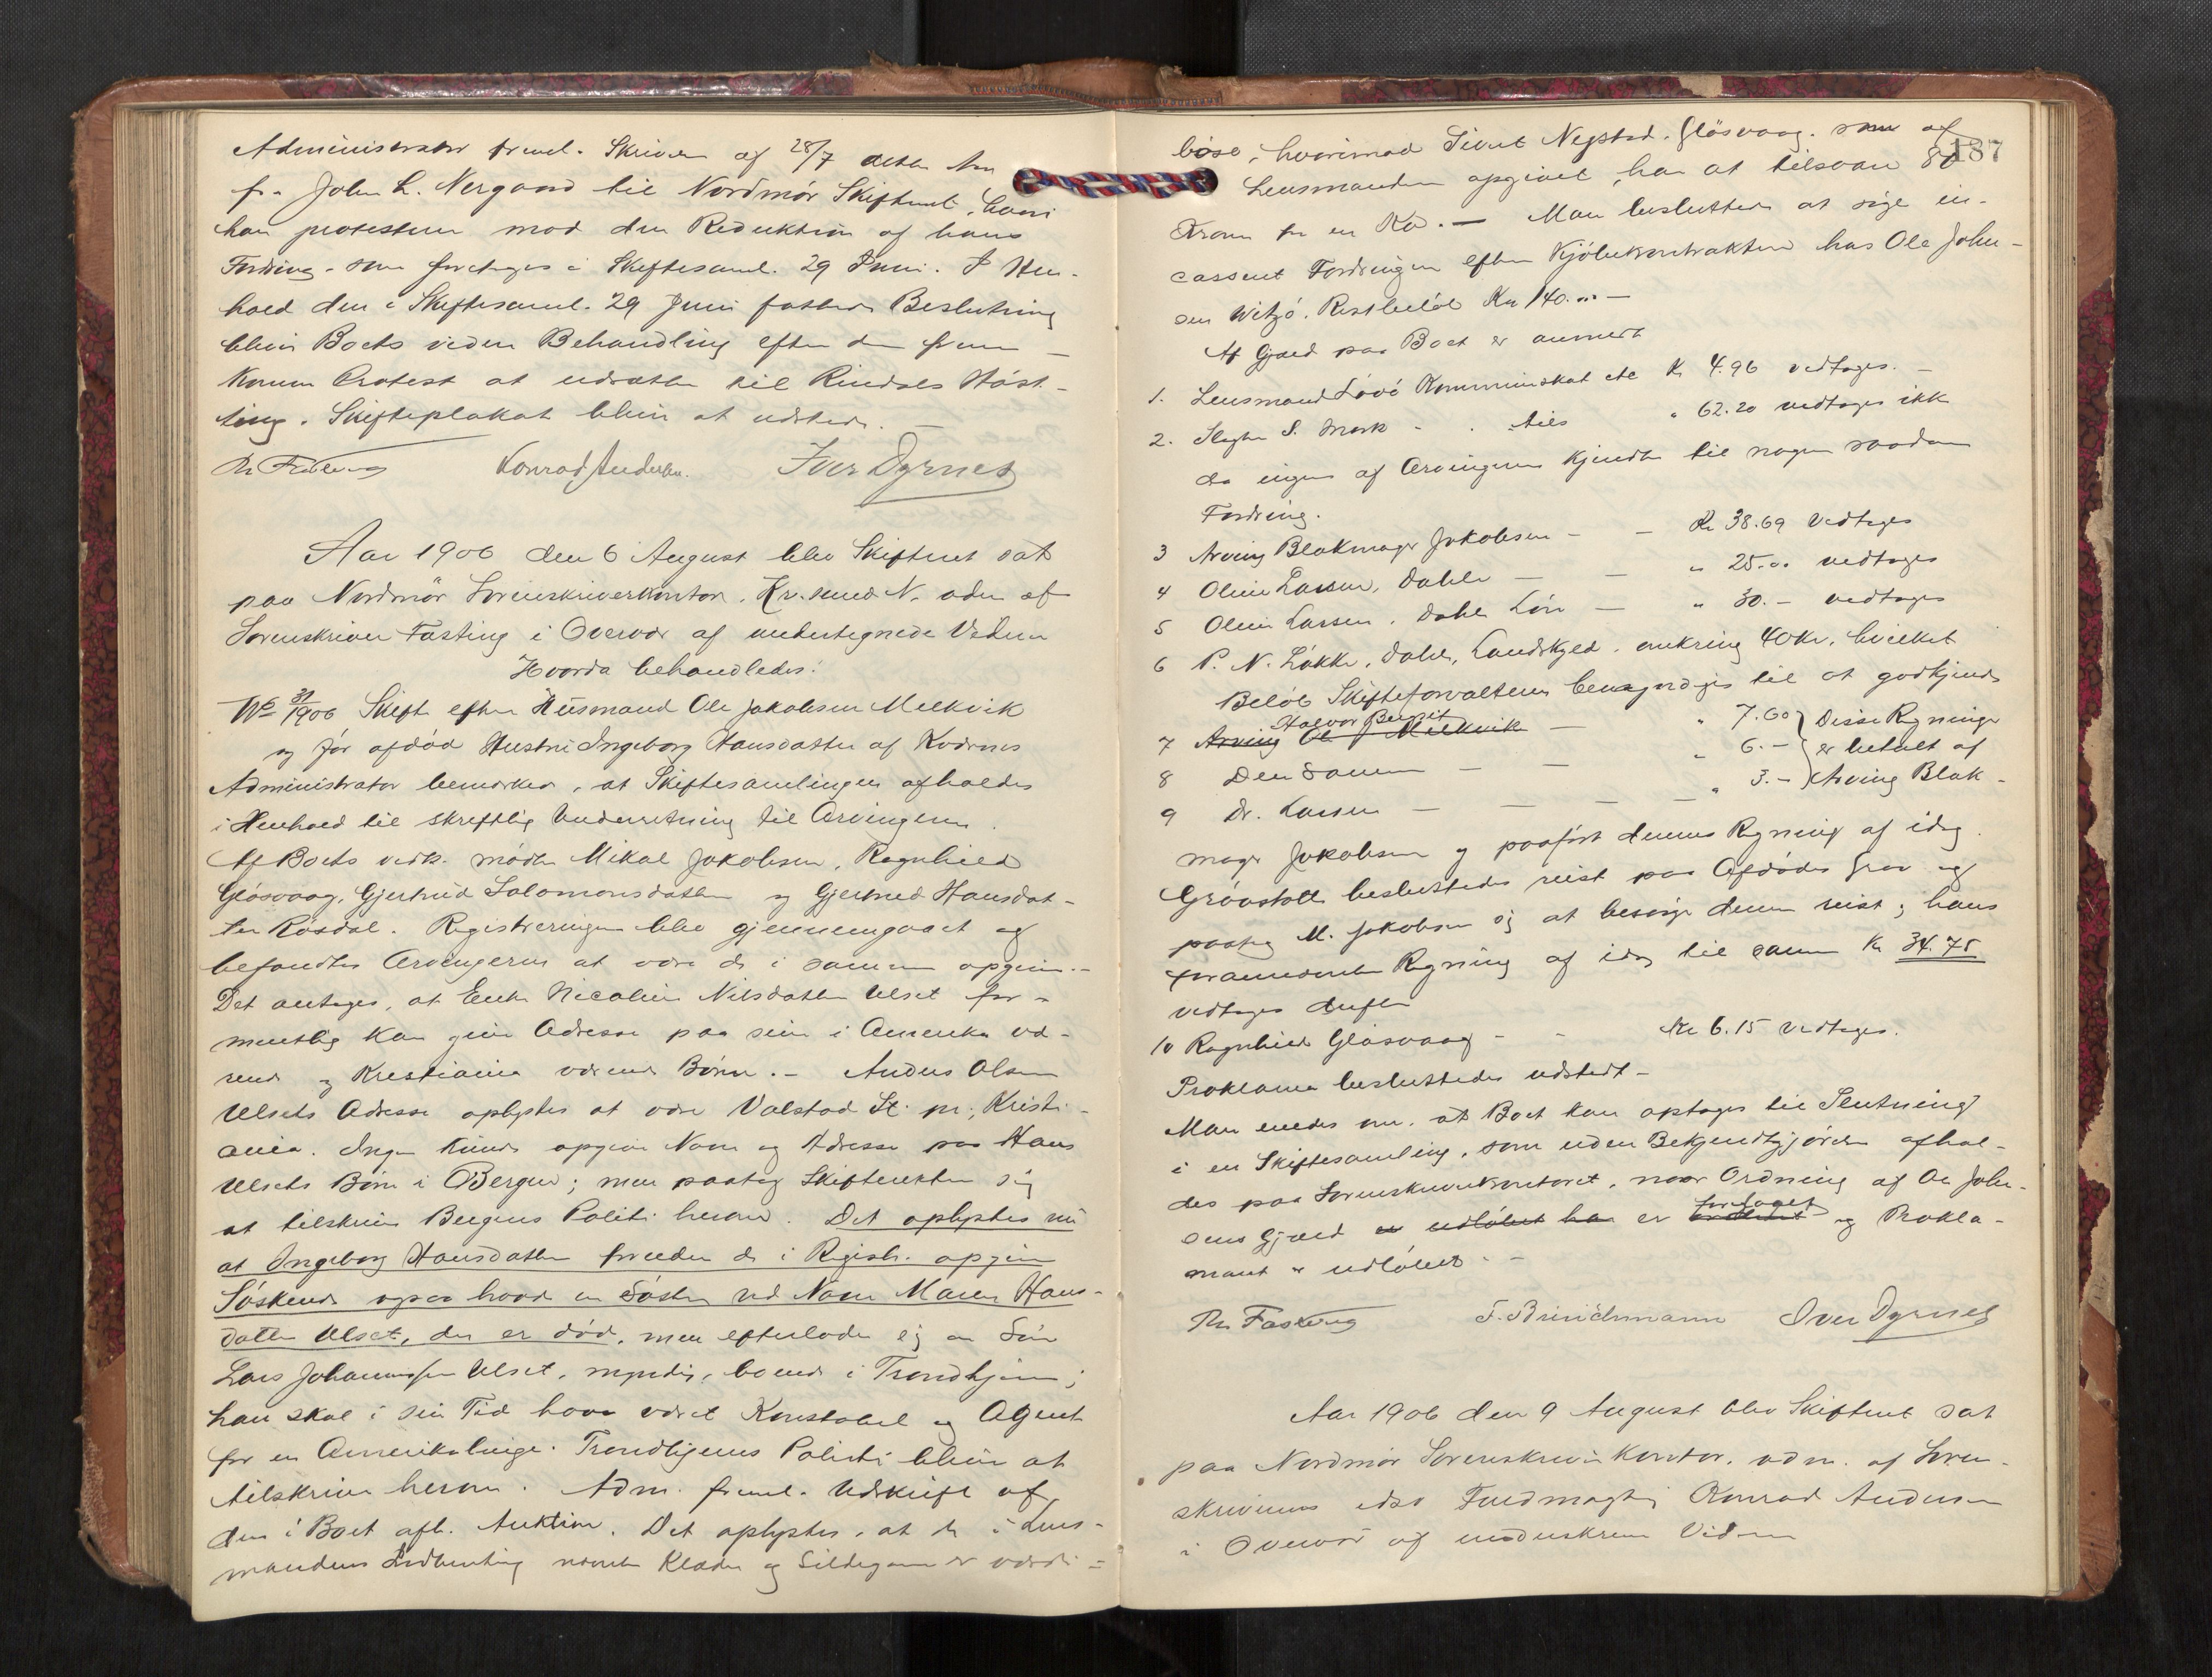 Administrator freml. Skrivelse af 28/7 dette Aar
fra John L. Nergaard til Nordmör Skifteret, hvori
han protesterer mod den Reduktion af hans
Fordring som foretoges i Skiftesaml. 29 Juni. I Hen-
hold den i Skiftesaml. 29 Juni fattede Beslutning
bliver Boets videre Behandling efter den frem-
komne Protest at udsætte til Rindals Höst-
ting. Skifteplakat bliver at udstede. —
Th Fasting Konrad Andersen. Iver Dyrnes
Aar 1906 den 6 August blev Skifteret sat
paa Nordmör Sorenskriverkontor, Kr.sund N. adm af
Sorenskriver Fasting i Overvær af undertegnede Vidner
Hvorda behandledes:
No 31/1906 Skifte efter Husmand Ole Jakobsen Melkvik
og för afdöd Hustru Ingeborg Hansdatter af Kvernes
Administrator bemerker, at Skiftesamlingen afholdes
i Henhold til skriftlig Underretning til Arvingerne.
Af Boets vedk. mödte Mikal Jakobsen, Ragnhild
Glösvaag, Gjertrud Salomonsdatter og Gjertrud Hansdat-
ter Rösdal. Registreringen blev gjennemgaaet og
befandtes Arvingerne at være de i samme opgivne.-
Det antages, at Enke Nicoline Nilsdatter Ulset for-
mentlig kan give Adresse paa sine i Amerika væ-
rende og Kristiania værende Börn. - Anders Olsen
Ulsets Adresse oplystes at være Valstad St. pr. Kristi-
ania. Ingen kunde opgive Navn og Adresse paa Hans
Ulsets Börn i Bergen; men paatog Skifteretten sig
at tilskrive Bergens Politi herom. Det oplystes nu
at Ingeborg Hansdatter foruden de i Registr. opgivne
Söskende ogsaa havde en Söster ved Navn Maren Hans-
datter Ulset, der er död, men efterlader sig en Sön
Lars Johannesen Ulset, myndig, boende i Trondhjem;
han skal i sin Tid have været Konstabel og Agent
for en Amerikalinje. Trondhjems Politi bliver at
tilskrive herom. Adm. freml. Udskrift af
den i Boet afh. Auktion. Det oplystes, at de i Lens-
mandens Indberetning nævnte Klæder og Sildegarn er værdi-
187
löse, hvorimod Sivert Negstad, Glösvaag, som af
Lensmanden opgivet, har at tilsvare 80
Kroner for en Ko. — Man besluttede at söge in-
casseret Fordringen efter Kjöbekontrakten hos Ole John-
sen Witzö. Restbelöb Kr 140.00 —
Af Gjæld paa Boet er anmeldt
1. Lensmand Lövö Kommuneskat etc Kr 4.96 vedtages. —
2. Slagter S. Mork - . tils " 62.20 vedtages ikke
da ingen af Arvingerne kjendte til nogen saadan
Fordring.
3 Arving Blokmager Jakobsen - — Kr 38.69 Vedtages
4 Oline Larsen, Dahle — — " 25.00 vedtages
5 Oline Larsen, Dahle Lön — " 30.— vedtages
6 P. N. Lökke, Dahle, Landskyld, omkring 40 Kr, hvilket
Belöb Skifteforvalteren bemyndiges til at godkjende
7 Arving Ole J Melkvik Halvor Bergit — " 7.60 Disse Regninger
8 Den Samme — — " 6.— er betalt af
9 Dr. Larsen — — — " 3.— Arving Blok-
mager Jakobsen og paafört dennes Regning af idag.
Gravstötte besluttedes reist paa Afdödes Grav og
paatog M. Jakobsen sig at besörge denne reist; hans
foranmeldte Regning af idag til samme Kr 34.75
vedtages derfor
10 Ragnhild Glösvaag - - Kr 6.15 vedtages.
Proklama besluttedes udstedt -
Man enedes om, at Boet kan optages til Slutning
i en Skiftesamling, som uden Bekjendtgjörelse afhol-
des paa Sorenskriverkontoret, naar Ordning af Ole John-
sens Gjæld er udlöbet har er ordnet foretaget og Prokla-
maet er udlöbet. —
Th. Fasting F. Brinchmann Iver Dyrnes
Aar 1906 den 9 August blev Skifteret sat
paa Nordmör Sorenskriverkontor, adm. af Soren-
skriverens edsv Fuldmægtig Konrad Andersen
i Overvær af underskrevne Vidner